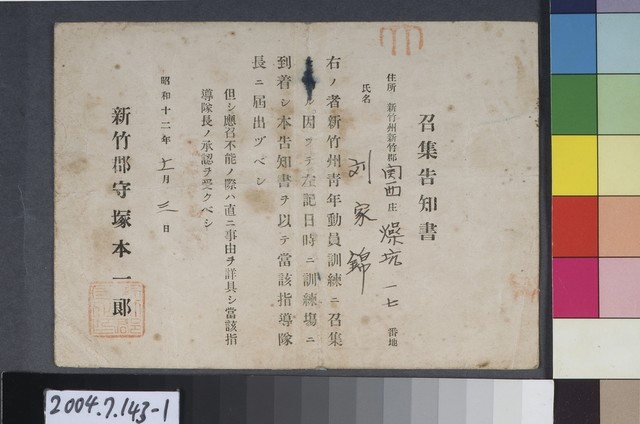 召集告知書
住所 新竹州新竹郡関西庄燥坑一七番地
氏名 刘家錦
右ノ者新竹州青年動員訓練ニ召集
ル因ッテ左記日時ニ訓練場ニ
到着シ本告知書ヲ以テ當該指導隊
長ニ屆出ヅベシ
但シ應召不能ノ際ハ直ニ事由ヲ詳具シ當該指
導隊長ノ承認ヲ受クベシ
昭和十二年 月三日
新竹郡守塚本一郎
2004.7.143-1